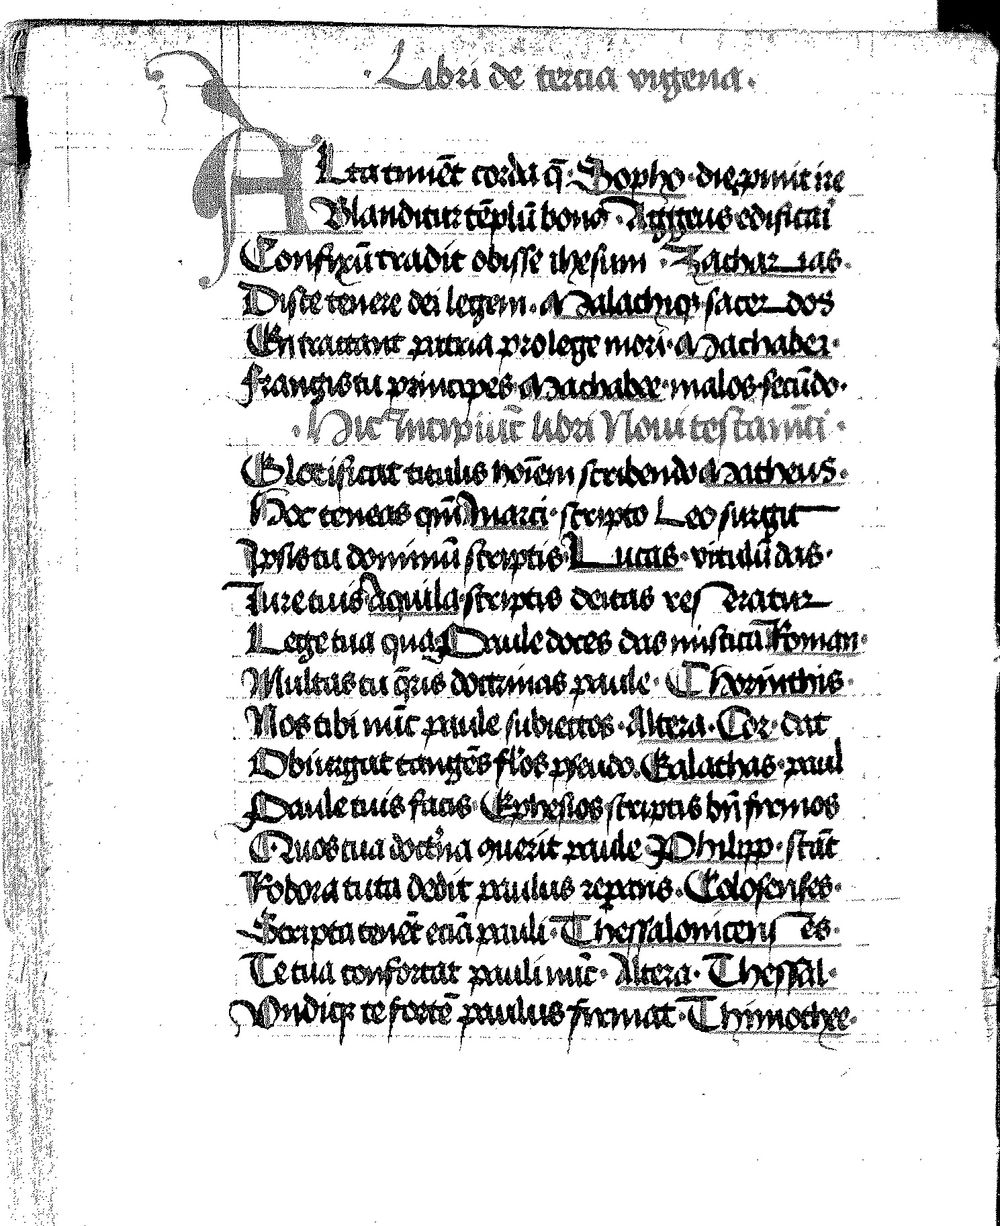 · Libri de tercia vigena ·
ALta timēt corda q̄ · Sopho · die punit ire
Blanditur tēplū bonꝰ · Aggeus edificat
Confixū tradit obisse ihesum · Zacharias ·
Disce tenere dei legem · Malachia · sacerdos
En tractant patria pro lege mori · Machabei ·
Frangis tu principes · Machabee · malos · secūdo ·
· Hic Incipiūt libri Noui testamēti ·
Glorificat titulis hoīem scribendo Matheus ·
Hoc teneas qm̄ Marci · scripto Leo surgit
Ipsis tu dominū scriptis Lucas · vitulū das ·
Iure tuis Aquila · scriptis deitas reseratur
Lege tua qua Paule doces das mistica Roman ·
Multas tu q̄ris doctrinas paule · Chorinthis ·
Nos tibi nūc paule subiectos · Altera · Cor · dat
Obiurgat tangēs fl'os pseudo · Galathas · paul
Paule tuis facis · Ephesios scriptis bn̄ firmos
Quos tua doctⁱna querit paule Philipp · stāt
Robora tuta dedit paulus reparas · Colosenses ·
Scripta tenēt eciā pauli · Thessalonicenses ·
Te tua confortat pauli nūc · Altera · Thessal ·
Vndiqꝫ te fortē paulus firmat · Thimothee ·